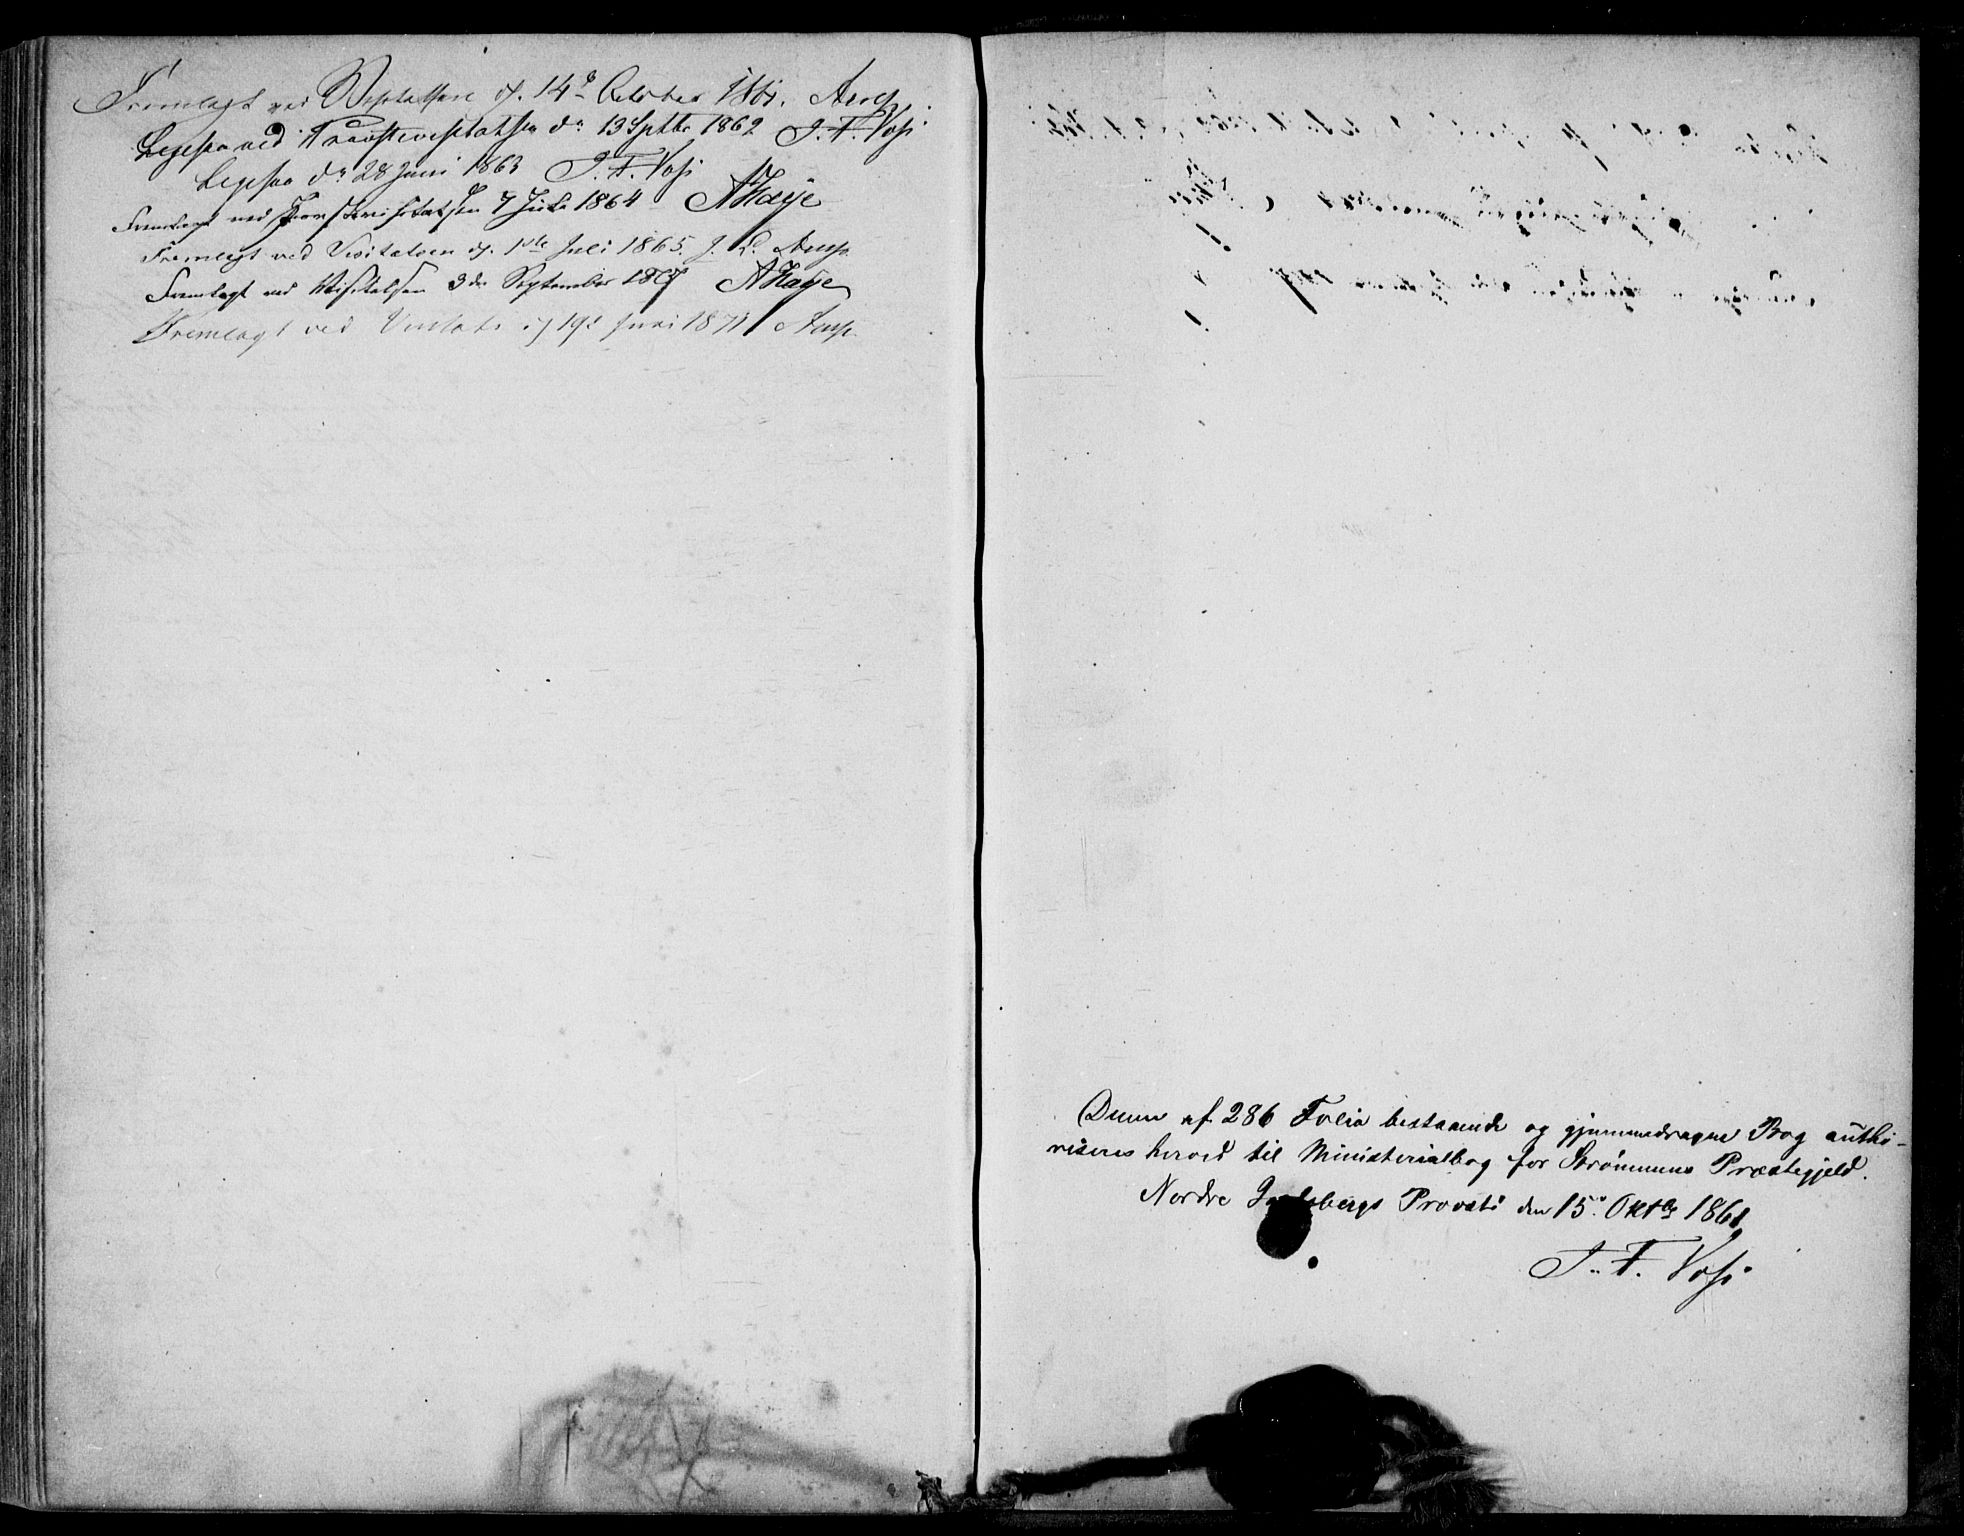 Fremlagt ved Visitatsen d. 14de October 1861. Arup.
Legesaa ved Provstevisitatsen dn 13 Septbr 1862 J. F. Voss
Legesaa dn 28 Juni 1863 J. F. Voss
Fremlagt ved Provstevisitatsen 7 Juli 1864 AHaye
Fremlagt ved Visitatsen d. 1ste Juli 1865. J. L. Arup.
Fremlagt ved Visitatsen 3de September 1867 AHaye
Fremlagt ved Visitats d 19de Juni 1871 Arup.
Denne af 286 Folia bestaaende og gjennemdragne Bog autho-
riseres herved til Ministerialbog for Strømmens Præstegjeld.
Nordre Jarlsbergs Provsti den 15de Oktbr 1861
J. F. Voss